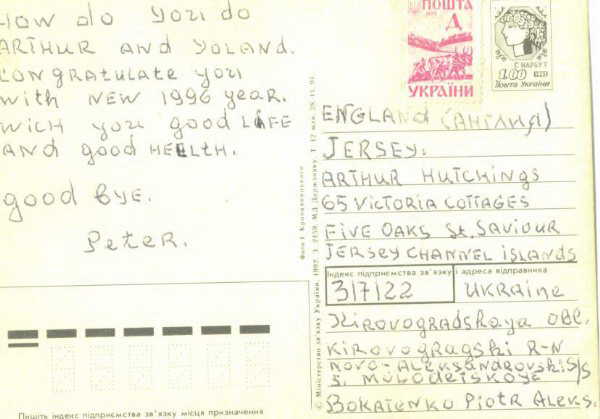 How do you do
ARTHUR AND YOLAND.
CONGRATULATE YOU
with NEW 1996 year.
wich you good LIFE
AND good HEELTH.
good bye.
Peter.
ПОШТА
Д
УКРАЇНИ
Г. НАРБУТ
1.00
Пошта України
ENGLAND (АНГЛИЯ)
JERSEY.
ARTHUR HUTCHINGS
65 VICTORIA COTTAGES
FIVE OAKS St. SAVIOUR
JERSEY CHANNEL iSLANDS
Індекс підприємства зв'язку і адреса відправника
317122
UKRAINE
Kirovogradskaya OBL.
KIROVOGRAGSKI R-N
NOVO-ALEKSANDROVSKI S/S
S. MOLODEISKOYE
BOKATENKO Piotr ALEKS.
Пишіть індекс підприємства зв'язку місця призначення